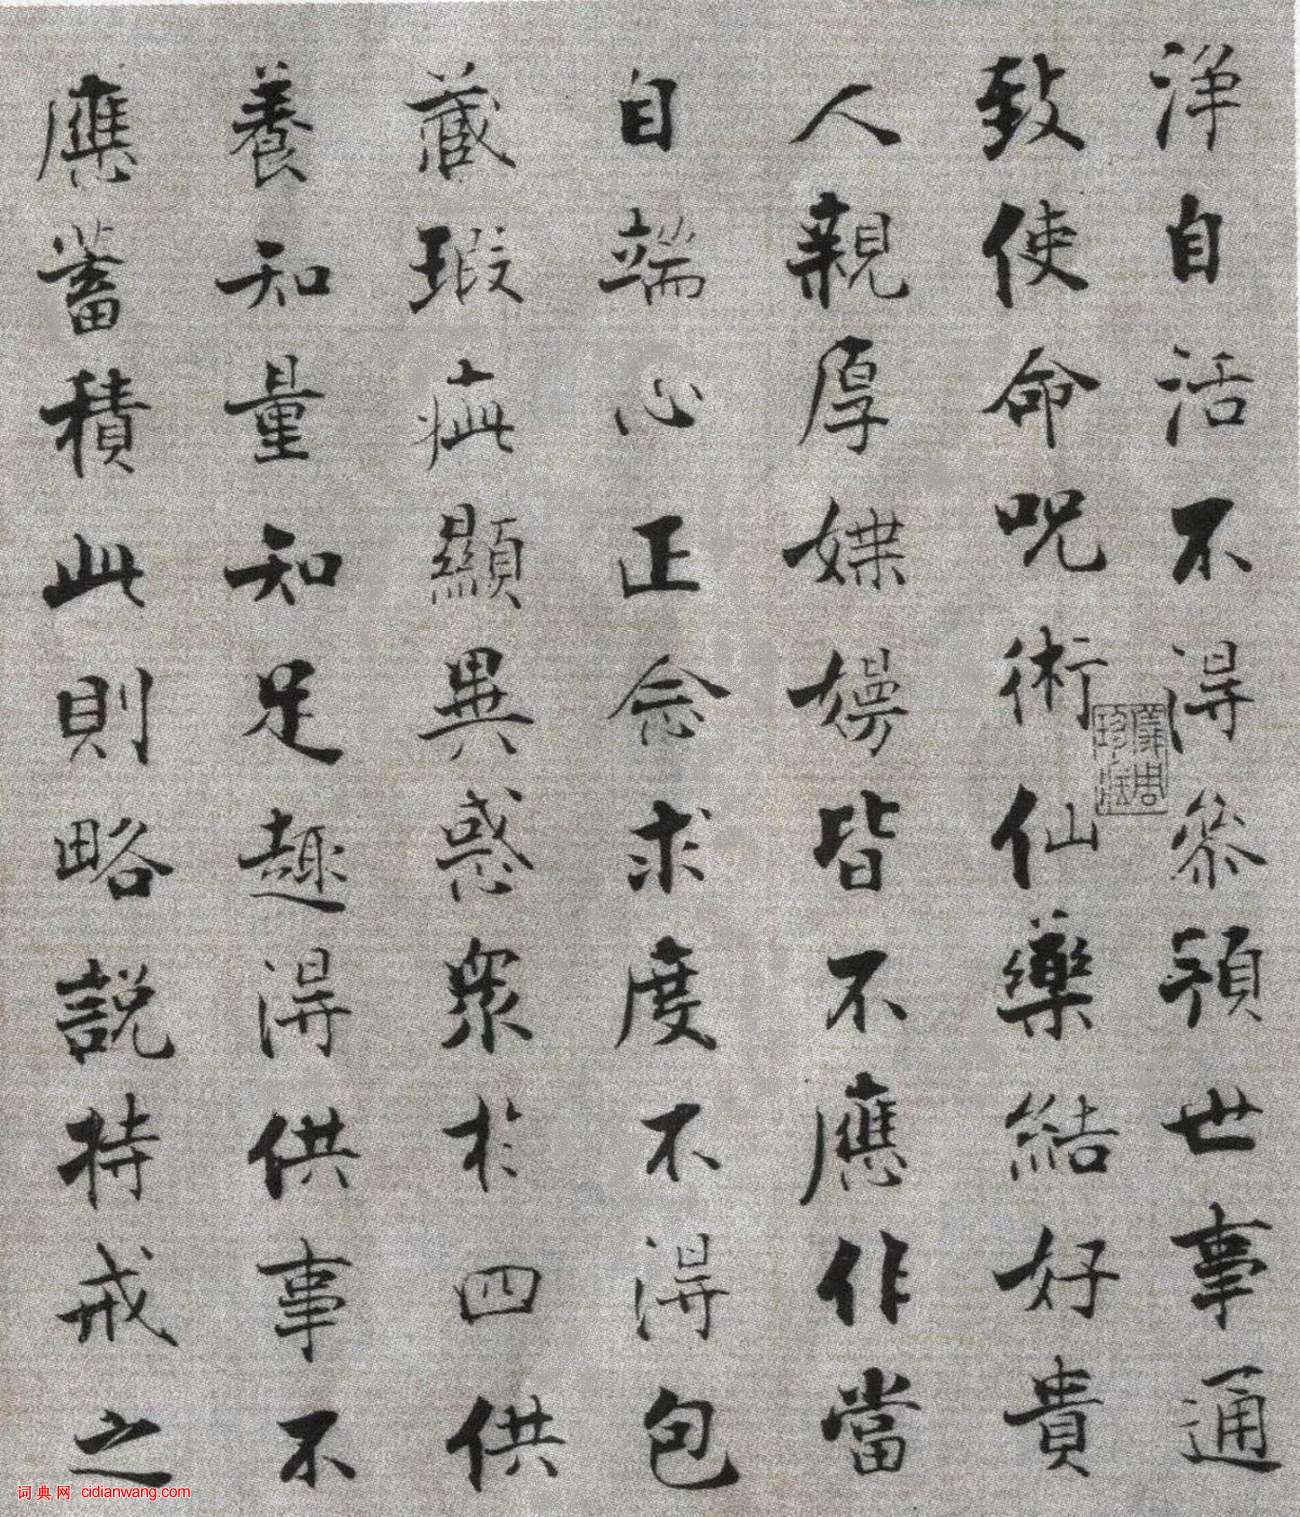 淨自活不得參預世事通
致使命呪術仙藥結好貴
人親厚媟嫚皆不應作當
自端心正念求度不得包
藏瑕疵顯異惑眾於四供
養知量知足趣得供事不
應蓄積此則略說持戒之
詞典网 cidianwang.com